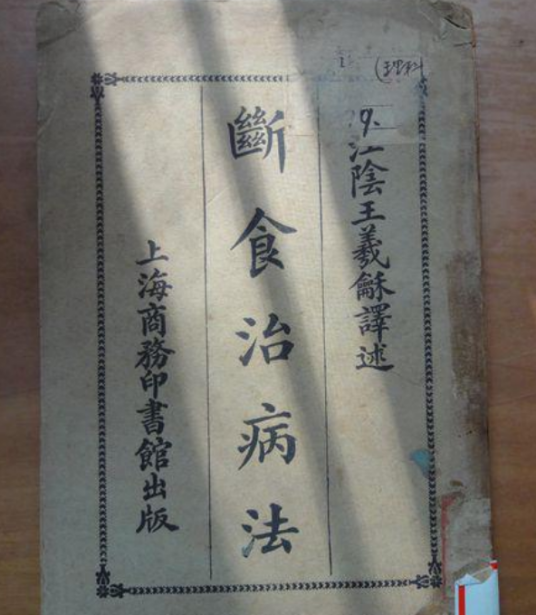 (理科)
19.
江陰王羲龢譯述
斷食治病法
上海商務印書館出版